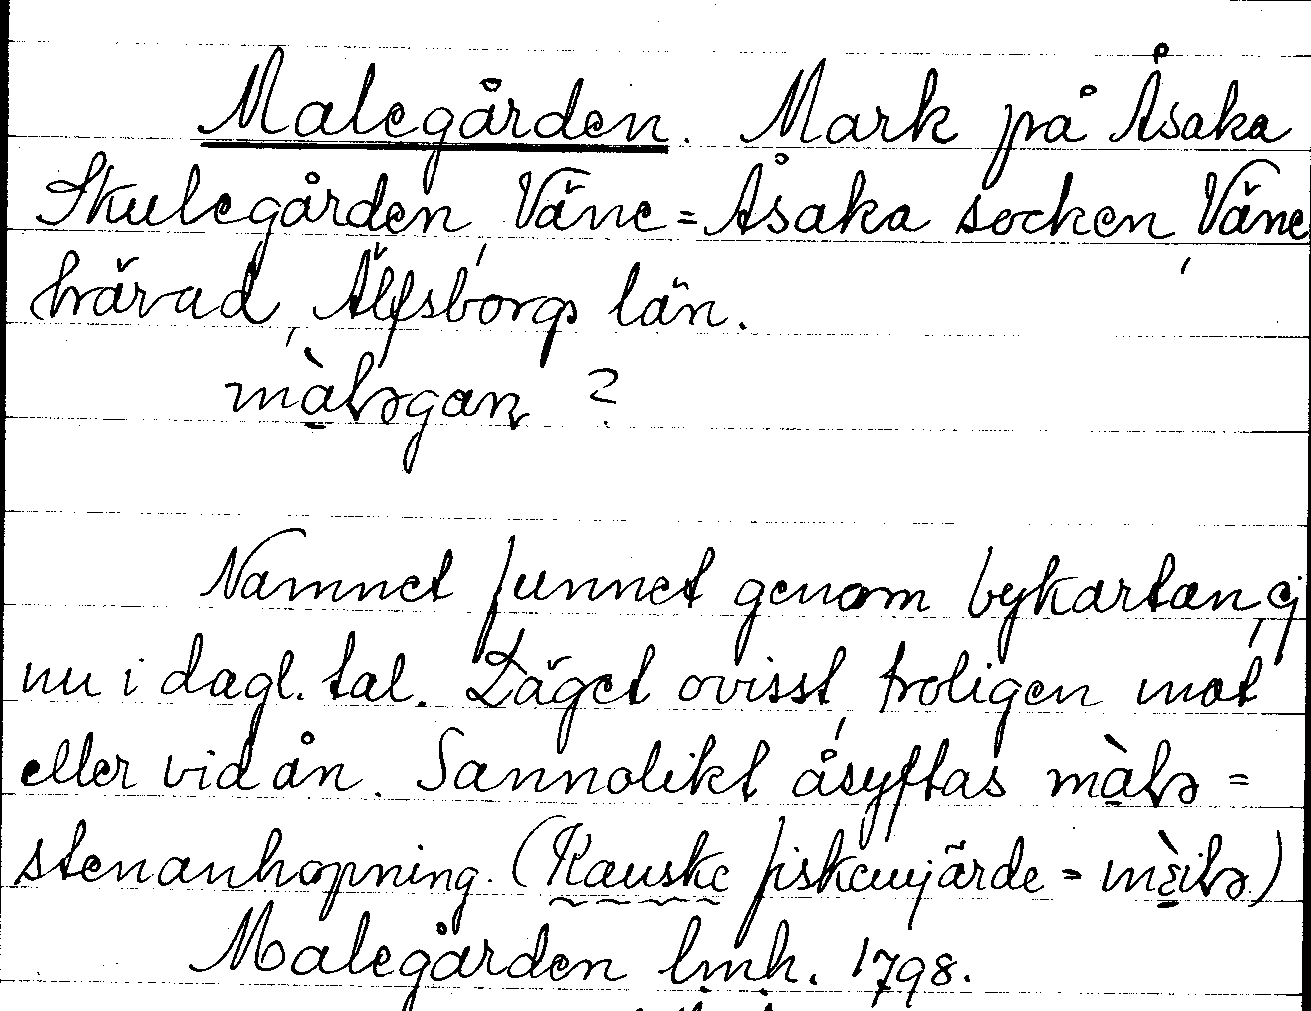 Malegården. Mark på Åsaka
Skulegården, Väne=Åsaka socken, Väne
härad, Älfsborgs län.
màlǝgaɳ ?
Namnet funnet genom bykartan, ej
nu i dagl. tal. Läget ovisst, troligen mot
eller vid ån. Sannolikt åsyftas màlǝ =
stenanhopning. (Rauske fiskeuvjärde =
Malegården lmh. 1798.